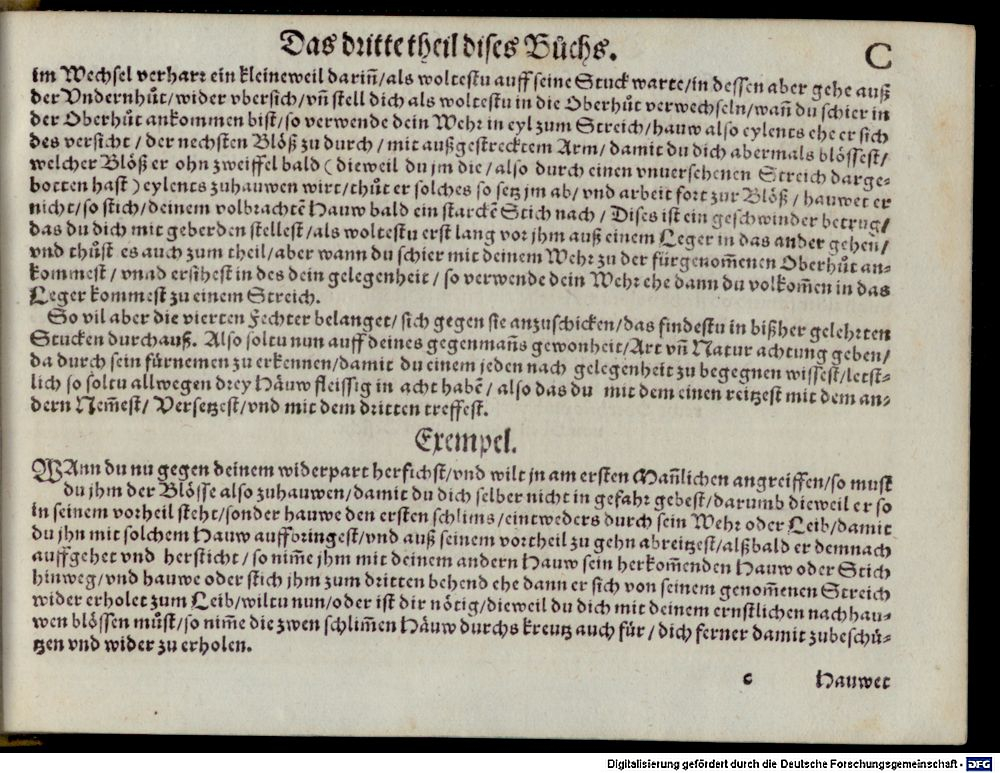 Das dritte theil dises Bůchs.
C
im Wechsel verharr ein kleine weil darin̄/als woltestu auff seine Stuck warte/in dessen aber gehe auß
der Vndernhůt/wider vbersich/vn̄ stell dich als woltestu in die Oberhůt verwechseln/wan̄ du schier in
der Oberhůt ankommen bist/so verwende dein Wehr in eyl zum Streich/hauw also eylents ehe er sich
des versicht/der nechsten Blöß zu durch/mit außgestrecktem Arm/damit du dich abermals blössest/
welcher Blöß er ohn zweiffel bald (dieweil du jm die/also durch einen vnuersehenen Streich darge-
botten hast) eylents zuhauwen wirt/thůt er solches so setz jm ab/vnd arbeit fort zur Blöß/hauwet er
nicht/so stich/deinem volbrachtē Hauw bald ein starckē Stich nach/Dises ist ein geschwinder betrug/
das du dich mit geberden stellest/als woltestu erst lang vor jhm auß einem Leger in das ander gehen/
vnd thůst es auch zum theil/aber wann du schier mit deinem Wehr zu der fürgenom̄enen Oberhůt an-
kommest/vnad ersihest in des dein gelegenheit/so verwende dein Wehr ehe dann du volkom̄en in das
Leger kommest zu einem Streich.
So vil aber die vierten Fechter belanget/sich gegen sie anzuschicken/das findestu in bißher gelehrten
Stucken durchauß. Also soltu nun auff deines gegenman̄s gewonheit/Art vn̄ Natur achtung geben/
da durch sein fürnemen zu erkennen/damit du einem jeden nach gelegenheit zu begegnen wissest/letst-
lich so soltu allwegen drey Häuw fleissig in acht habē/also das du mit dem einen reitzest mit dem an-
dern Nem̄est/Versetzest/vnd mit dem dritten treffest.
Exempel.
WAnn du nu gegen deinem widerpart herfichst/vnd wilt jn am ersten Man̄lichen angreiffen/so must
du jhm der Blösse also zuhauwen/damit du dich selber nicht in gefahr gebest/darumb dieweil er so
in seinem vorheil steht/sonder hauwe den ersten schlims/eintweders durch sein Wehr oder Leib/damit
du jhn mit solchem Hauw auffbringest/vnd auß seinem vortheil zu gehn abreitzest/alßbald er demnach
auffgehet vnd hersticht/so nim̄e jhm mit deinem andern Hauw sein herkom̄enden Hauw oder Stich
hinweg/vnd hauwe oder stich jhm zum dritten behend ehe dann er sich von seinem genom̄enen Streich
wider erholet zum Leib/wiltu nun/oder ist dir nötig/dieweil du dich mit deinem ernstlichen nachhau-
wen blössen můst/so nim̄e die zwen schlim̄en Häuw durchs kreutz auch für/dich ferner damit zubeschü-
tzen vnd wider zu erholen.
c
Hauwet
Digitalisierung gefördert durch die Deutsche Forschungsgemeinschaft - DFG